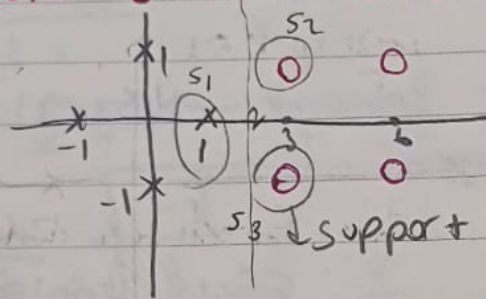 S2
1
S1
-1
1
2
3
6
-1
S3
support